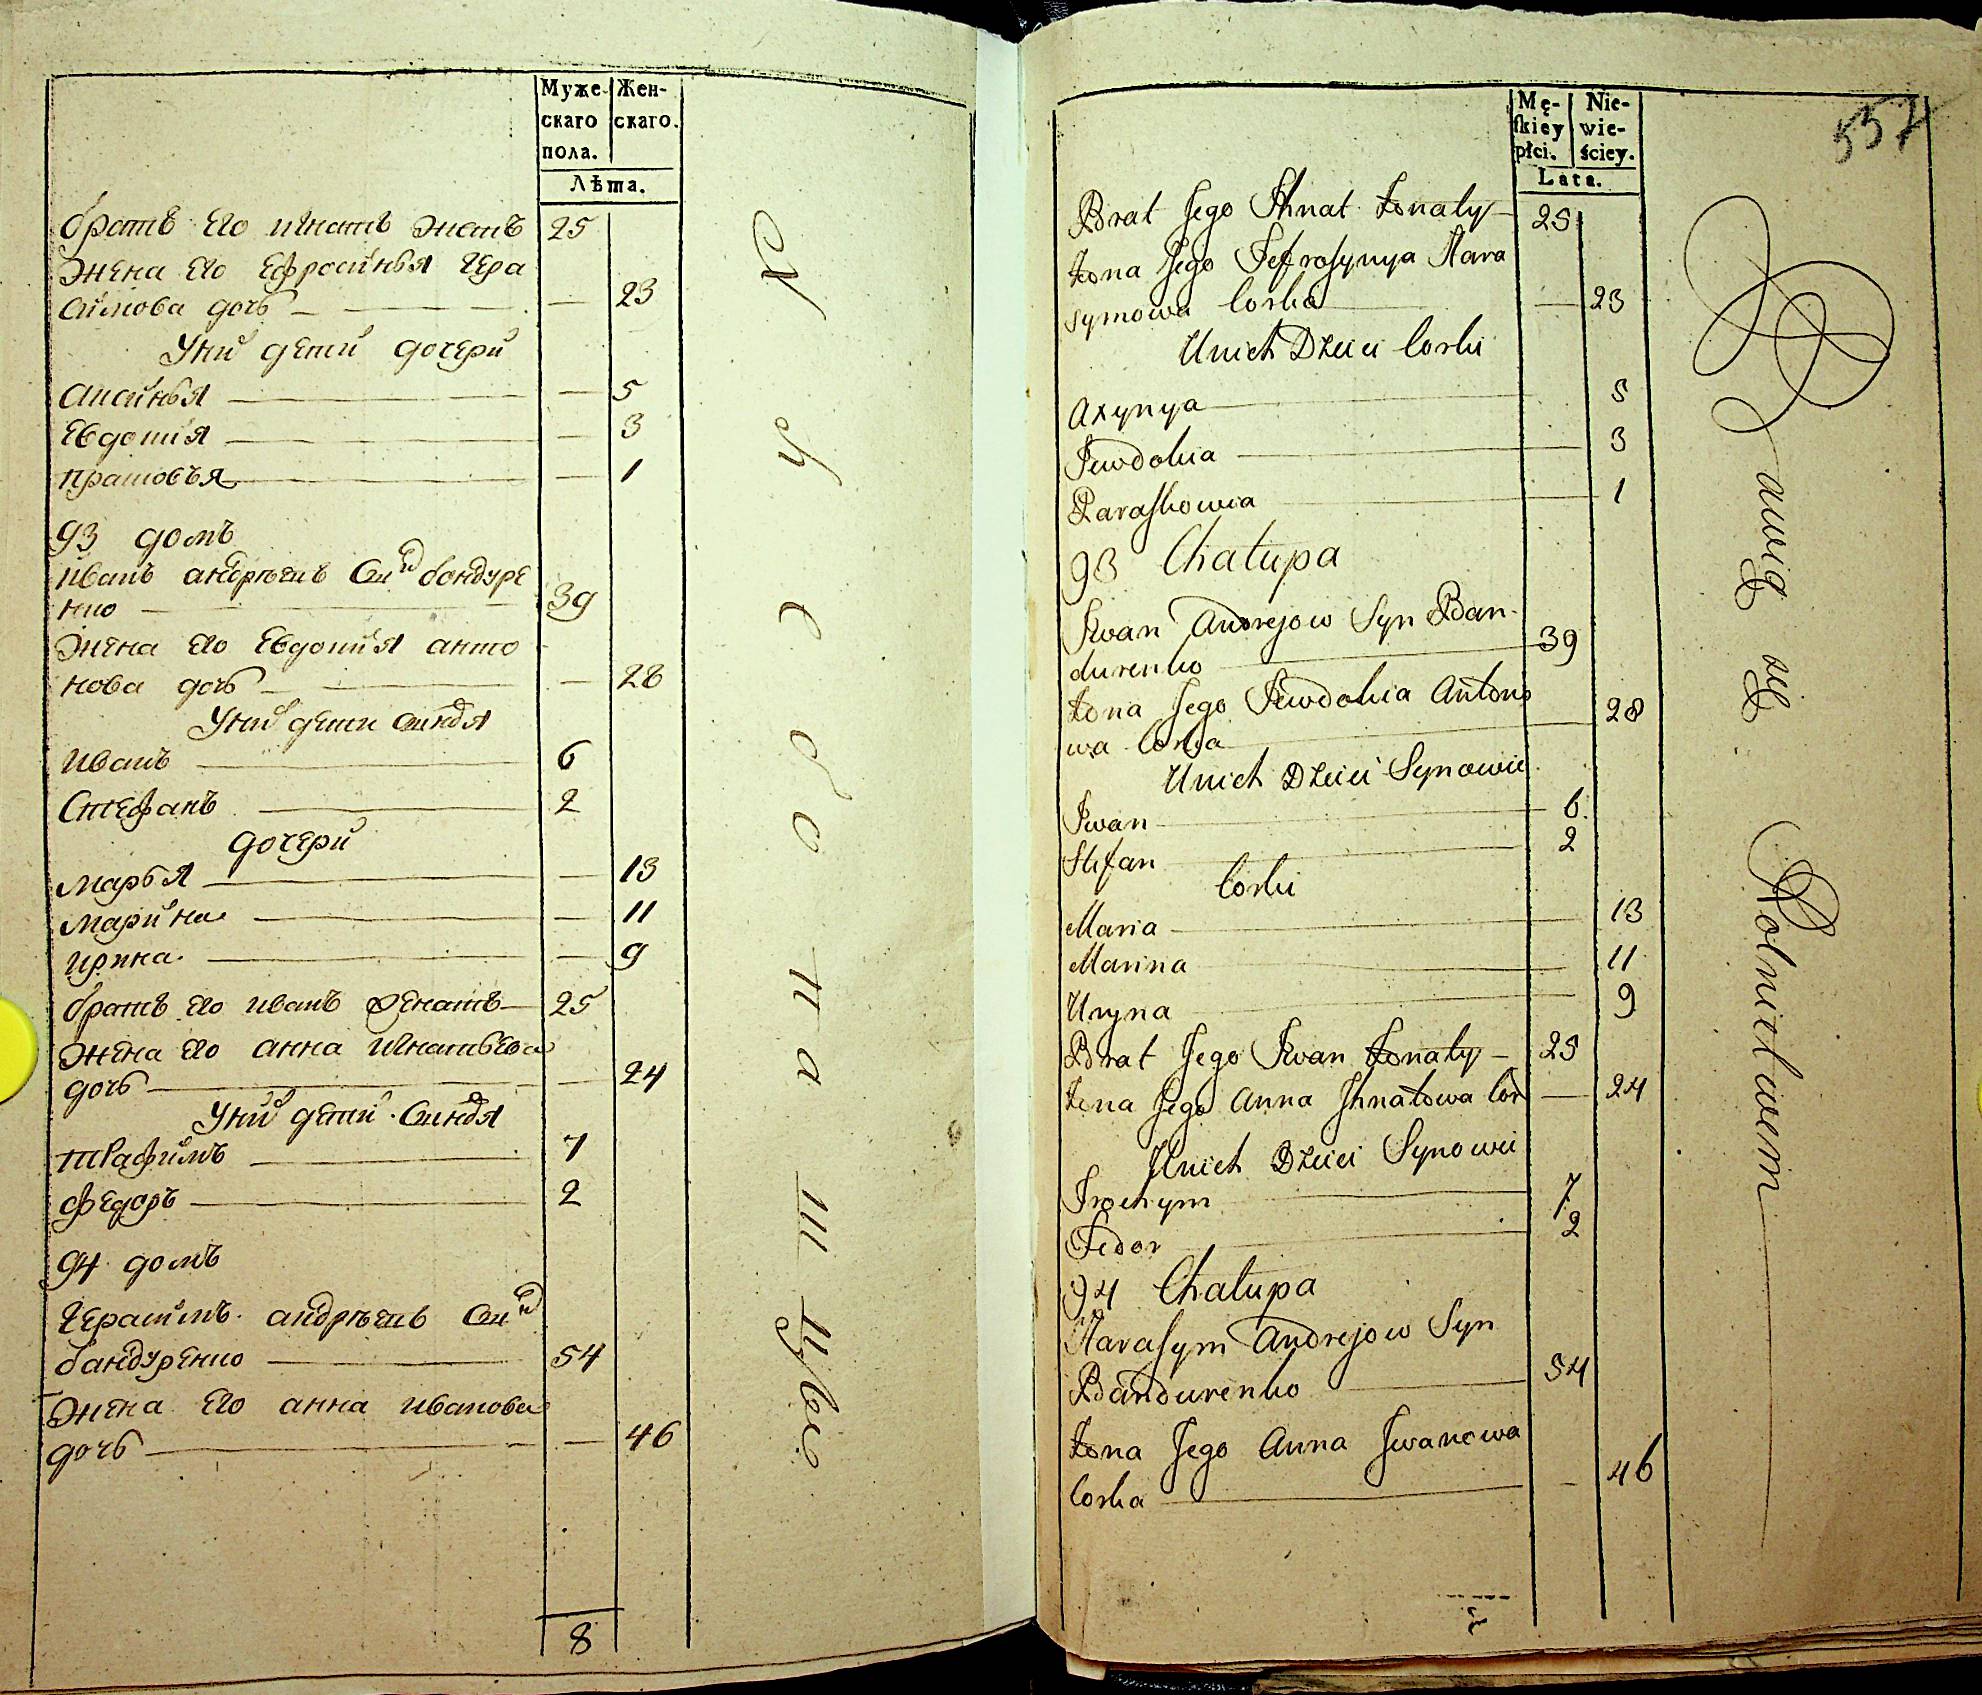 Муже-
скаго
пола.
Жен-
скаго.
Лѣта.
братъ Его игнатъ женатъ 25
жена Его Ефросинья Гера
симова дочь — 23
У них дети дочери
Аксинья — 5
Евдокия — 3
прасковья — 1
93 домъ
Иванъ андрѣевъ Сын бондуре
нко 39
жена Его Евдокия анто
нова дочь — 28
У них дети сыновья
иванъ 6
Стефанъ 2
дочери
марья — 13
марина — 11
ирина — 9
братъ Его иванъ женатъ 25
жена Его анна игнатьева
дочь — 24
У них дети сыновья
трафимъ 7
федоръ 2
94 домъ
Герасимъ андрѣевъ Сын
бандуренко 54
жена Его анна иванова
дочь — 46
8
337
Mę-
skiey
płci.
Nie-
wie-
ściey.
Lata.
Brat Jego Ihnat żonaty 25
żona Jego Jefrosynya Hara
symowa Corka — 23
Unich Dzieci Corki
Axynya 5
Jewdokia 3
Paraskowia 1
93 Chałupa
Iwan Andrejow Syn Ban-
durenko 39
żona Jego Jewdokia Antono
wa Corka 28
Unich Dzieci Synowie
Iwan 6
Stefan 2
Corki
Maria 13
Marina 11
Uryna 9
Brat Jego Iwan żonaty 25
żona Jego Anna Ihnatowa Cor — 24
Unich Dzieci Synowie
Trochym 7
Fedor 2
94 Chałupa
Harasym Andrejow Syn
Bandurenko 54
żona Jego Anna Iwanowa
Corka — 46
Bawią się Rolnictwem